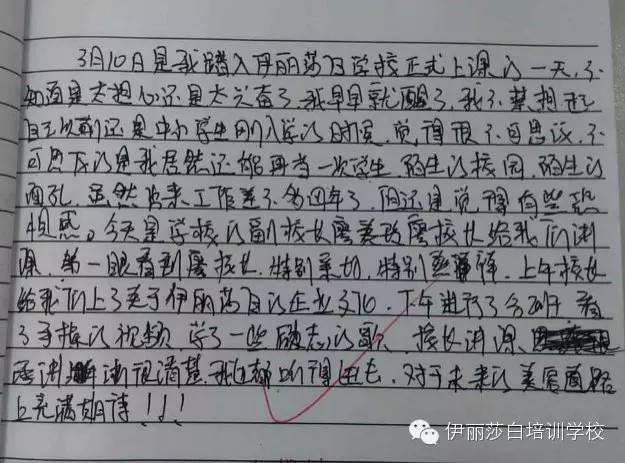 3月10日是我踏入伊丽莎白学校正式上课的一天,不
知道是太担心还是太兴奋了,我早早就醒了,我不禁想起
自己以前还是中小学生刚入学的时候,觉得很不可思议,不
可思议的是我居然还能再当一次学生,陌生的校园,陌生的
面孔,虽然出来工作差不多四年了,但还是觉得有些恐
惧感。今天是学校的副校长廖美 廖校长给我们讲
课,第一眼看到廖校长,特别亲切,特别 ,上午校长
给我们上了关于伊丽莎白的企业文化,下午进行了分班,看
了手操的视频,学了一些励志的歌,校长讲课
讲解讲很清楚,我们都听得 ,对于未来的美容道路
上充满期待!!!
伊丽莎白培训学校